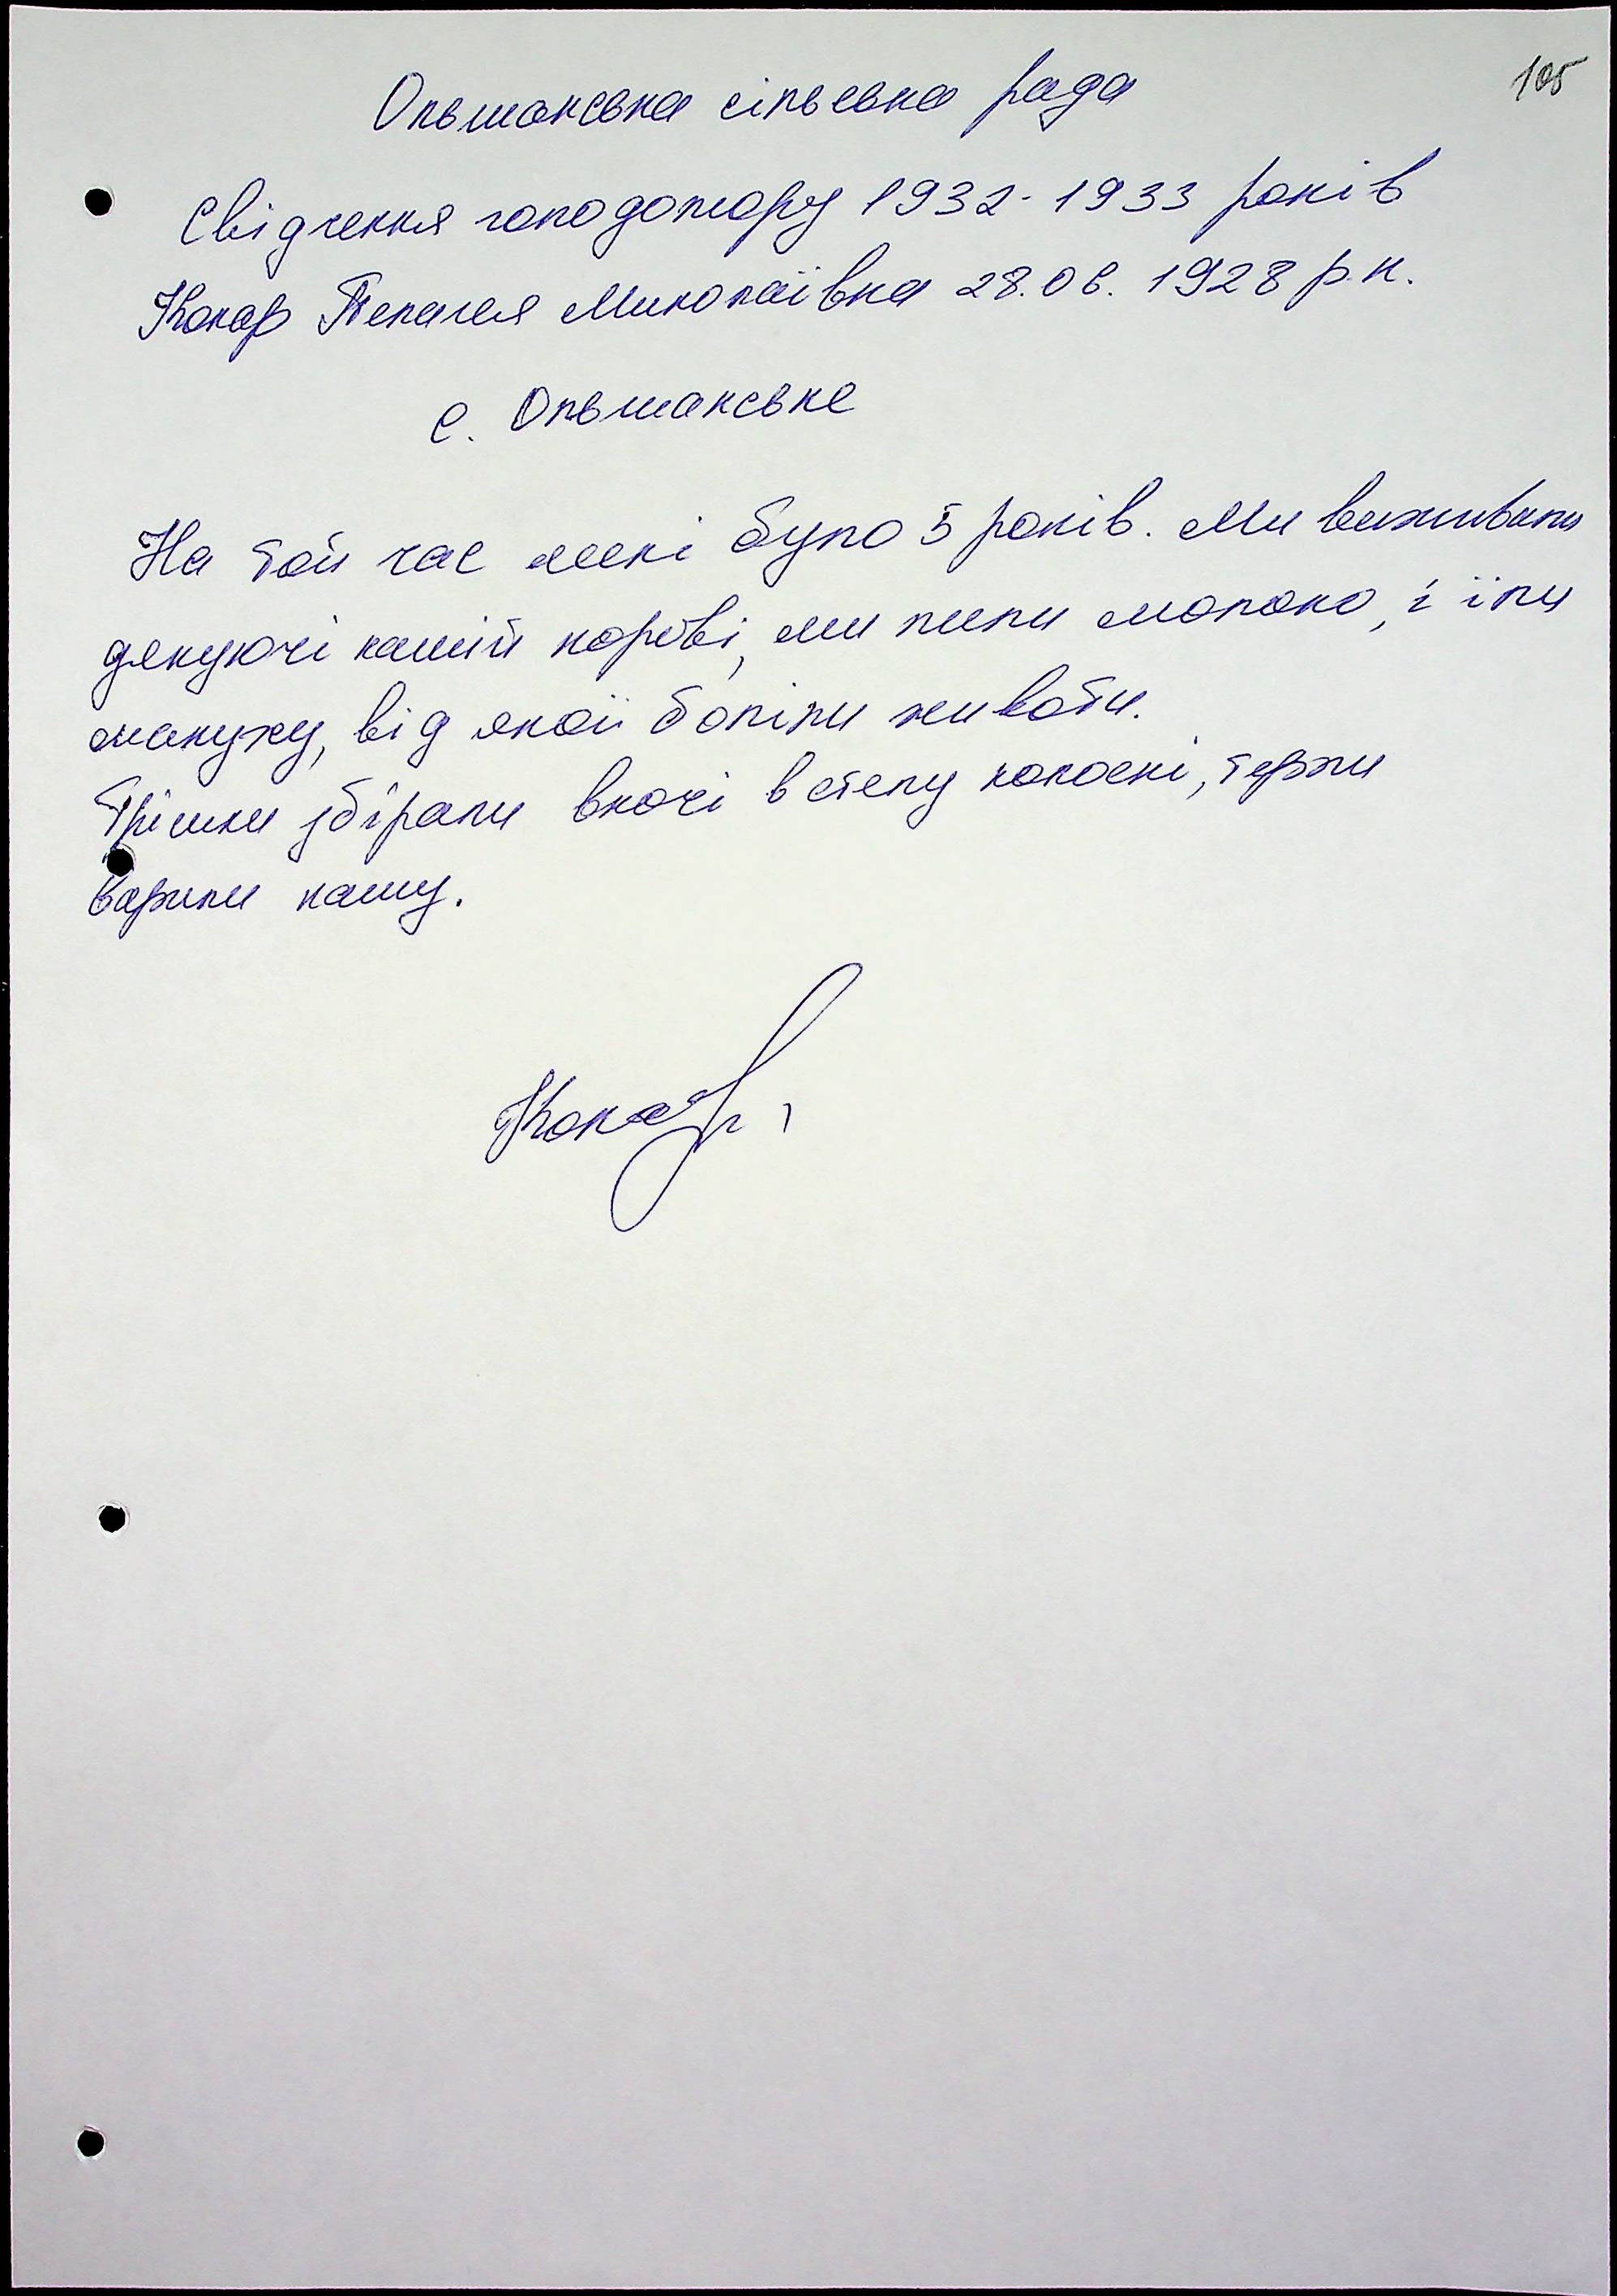 105
Ольшанська сільська рада
Свідчення голодомору 1932-1933 років
Кокар Пелагея Миколаївна 28.06.1928 р.н.
с. Ольшанське
На той час мені було 5 років. Ми виживали
дякуючі нашій корові, ми пили молоко, і їли
макуху, від якої боліли животи.
Трішки збірали вночі в степу колоскі, терли
варили кашу.